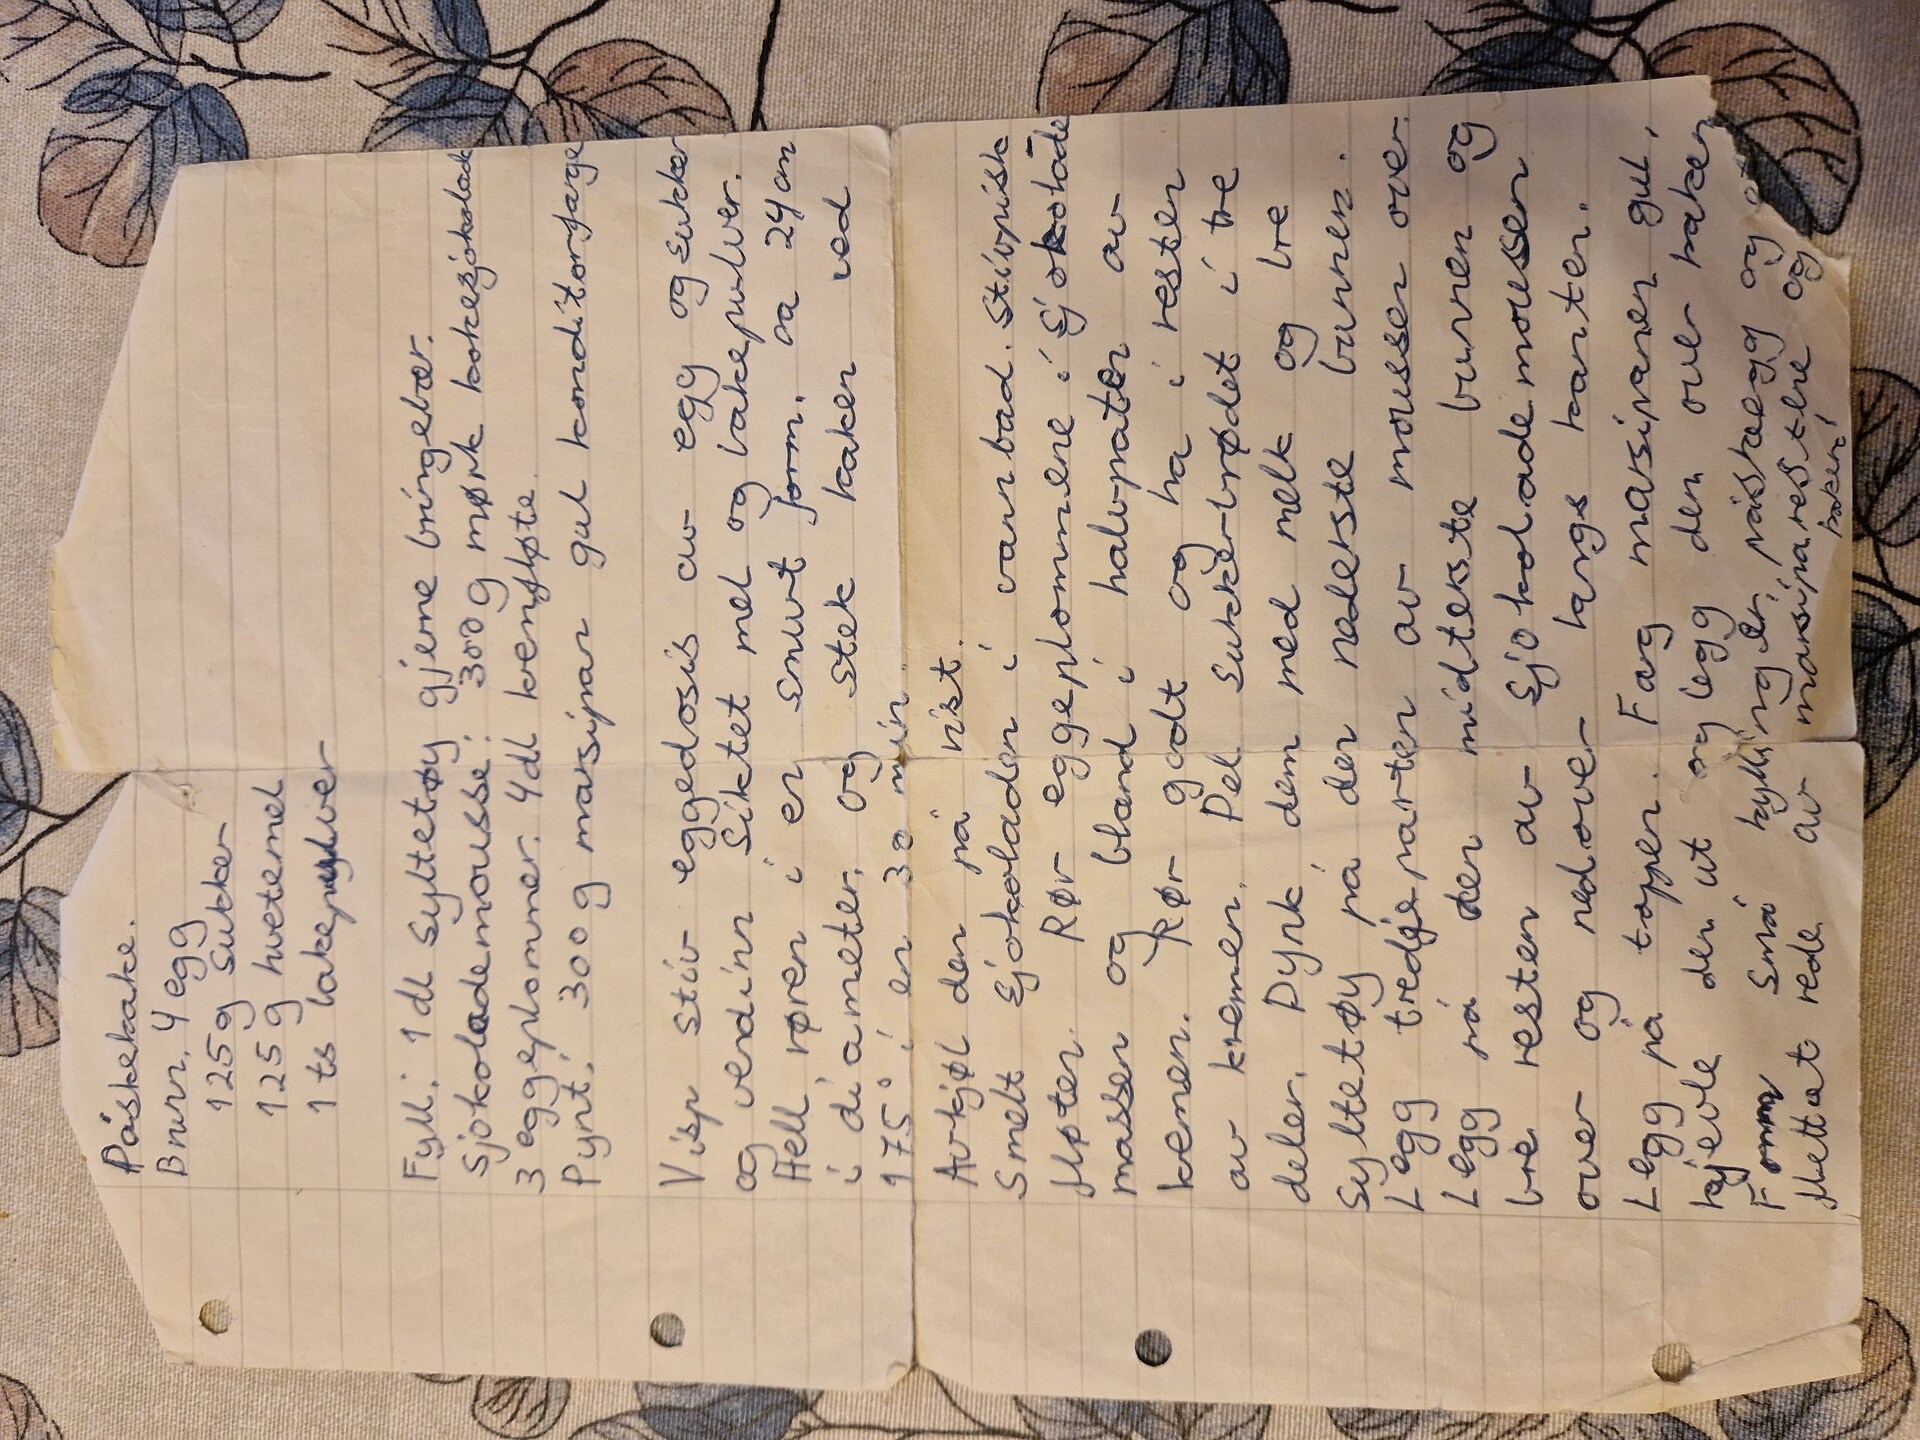 Påskekake.
Bunn. 4 egg
125g sukker
125g hvetemel
1 ts bakepulver
Fyll: 1 dl syltetøy gjerne bringebær.
Sjokolademousse: 300g mørk kokesjokolade
3 eggeplommer. 4dl kremfløte.
Pynt: 300g marsipan gul konditorfarge
Visp stiv eggedosis av egg og sukker
og vend inn siktet mel og bakepulver.
Hell røren i en smurt form. ca 24cm
i diameter. og stek kaken ved
175° i en 30 min.
Avkjøl den på rist.
Smelt sjokoladen i vannbad. Stivpisk
fløten. Rør eggeplommene i sjokolade-
massen og bland i halvpaten av
kemen. Rør godt og ha i resten
av kremen. Del sukkerbrødet i tre
deler. Dynk dem med melk og bre
syltetøy på den nederste bunnen.
Legg tredjeparten av moussen over.
Legg på den midterste bunnen og
bre resten av sjokolademoussen
over og nedover langs kanten.
Legg på toppen. Farg marsipanen gul,
kjevle den ut og legg den over kaken
Form små kyllinger, påskeegg og
flettet rede av marsiparestene og